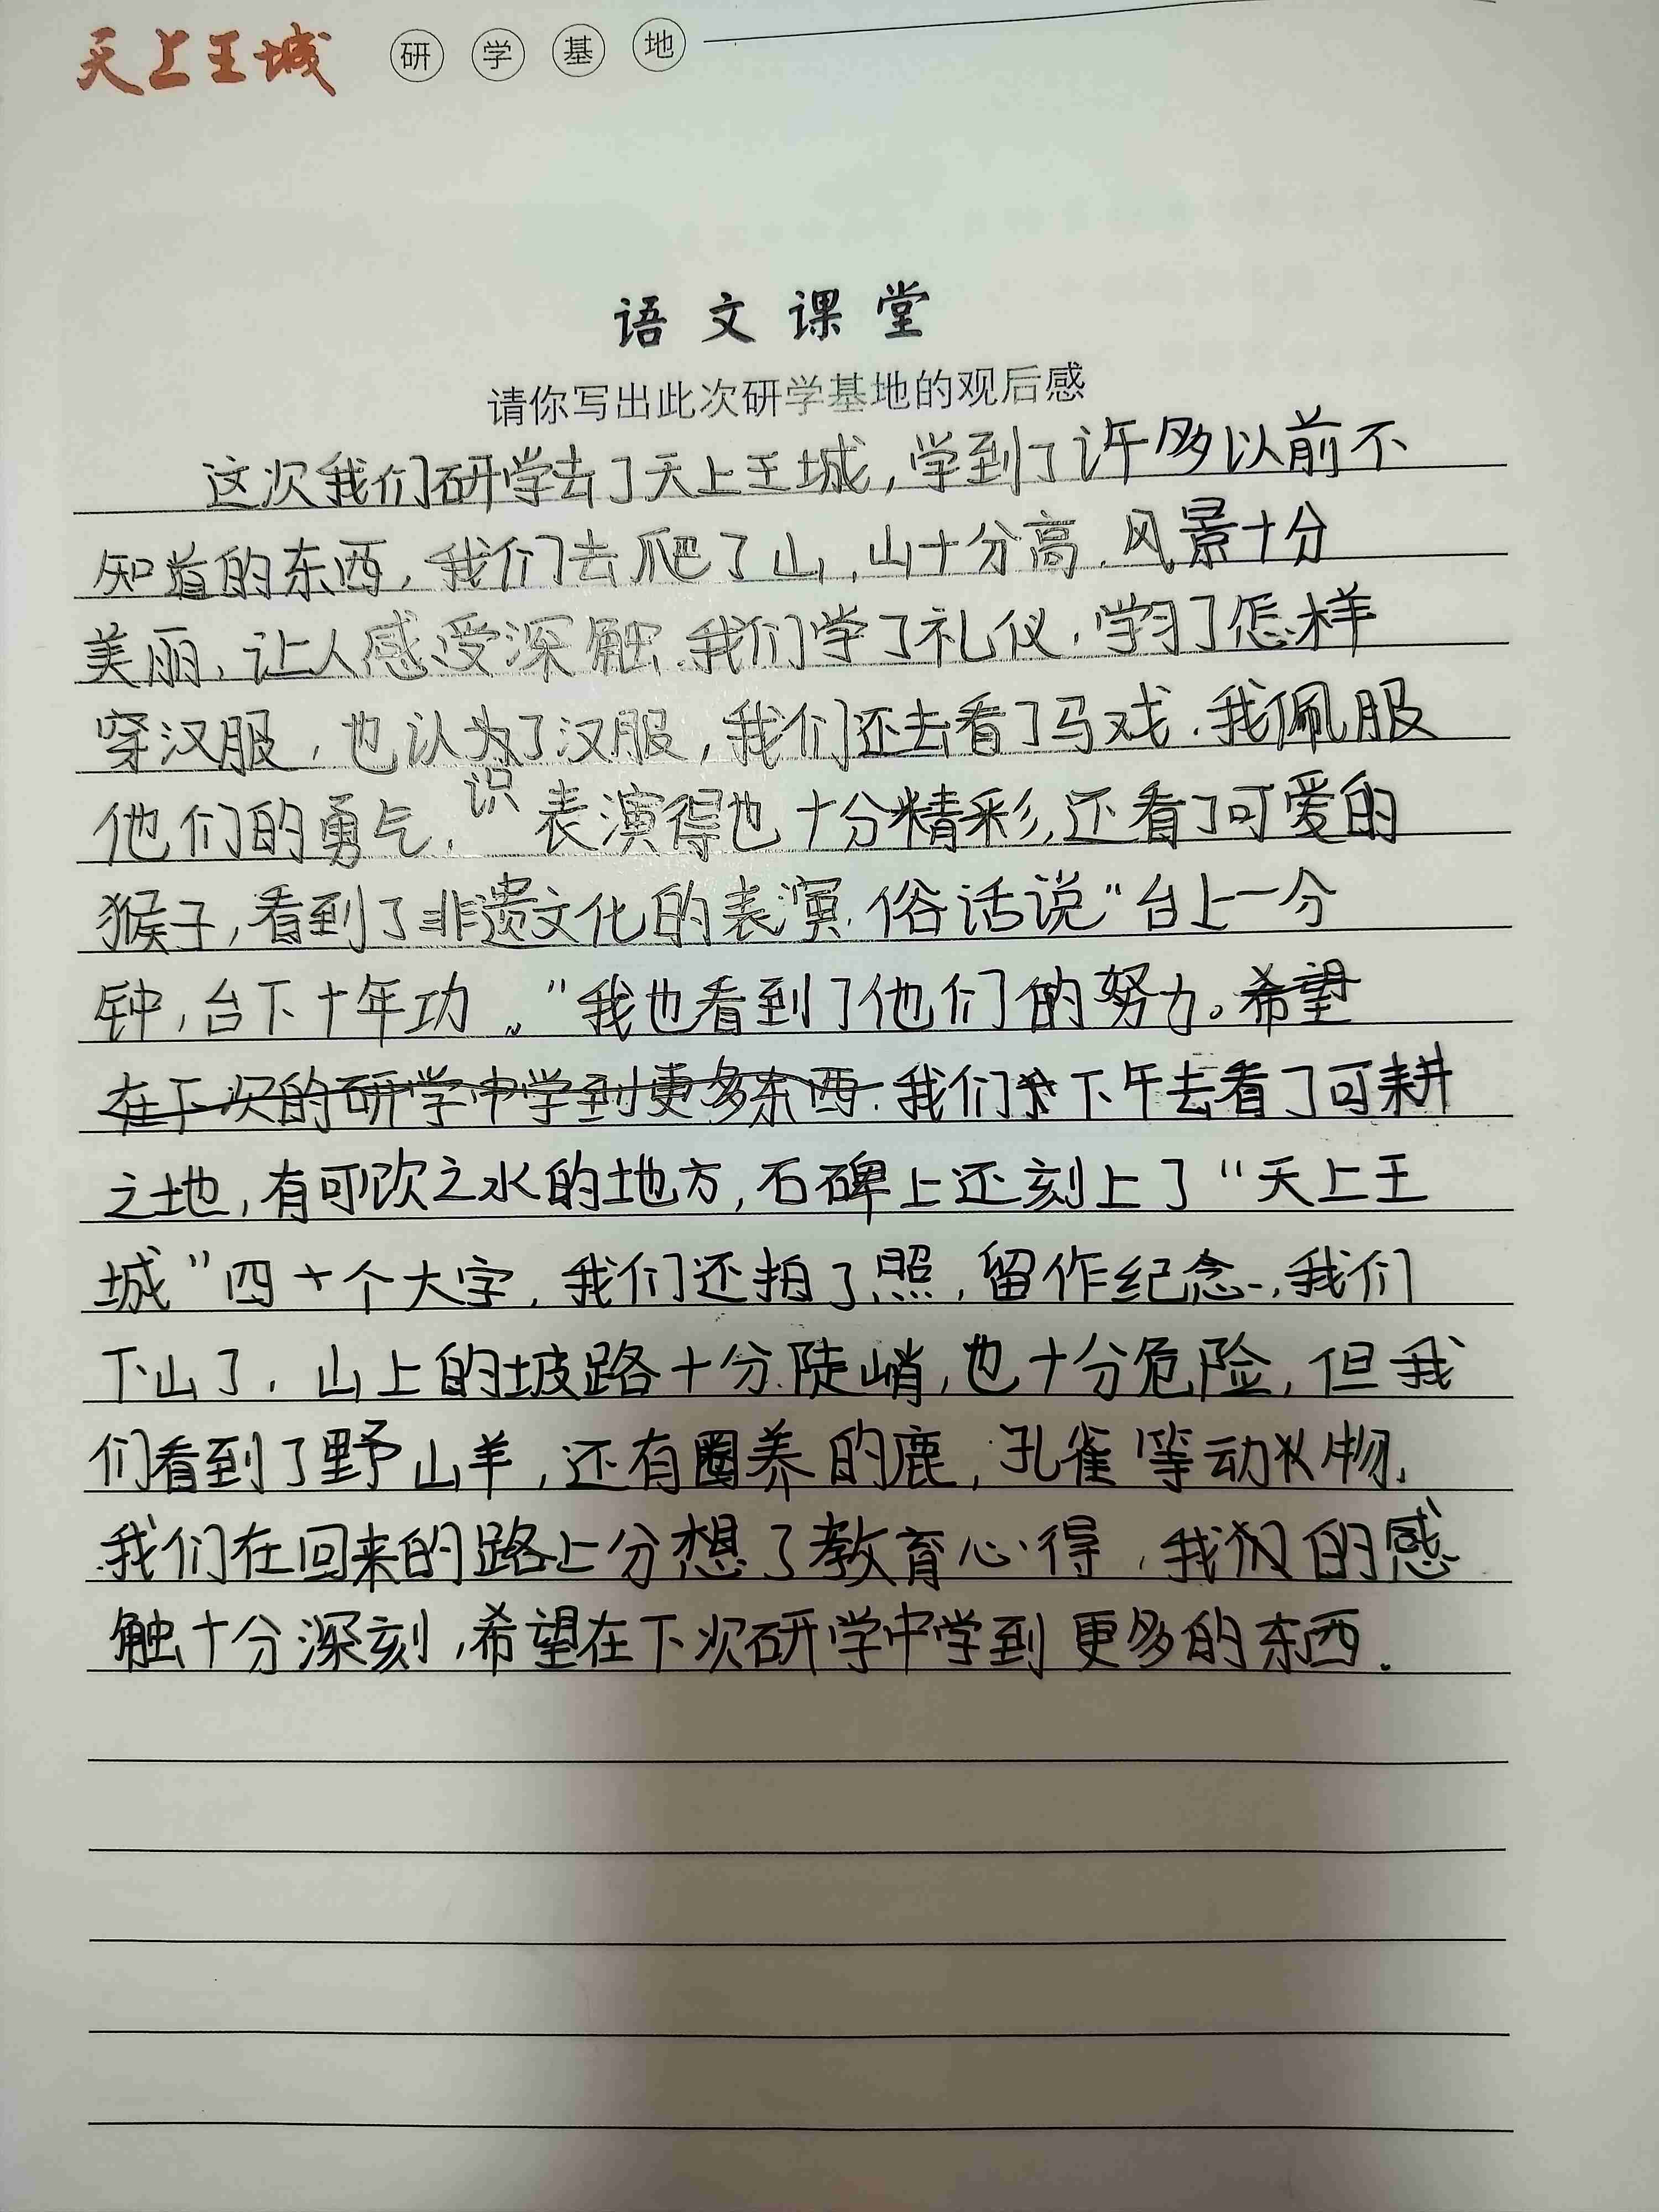 天上王城 研学基地
语文课堂
请你写出此次研学基地的观后感
这次我们研学去了天上王城,学到了许多以前不
知道的东西,我们去爬了山,山十分高.风景十分
美丽,让人感受深触.我们学了礼仪,学习了怎样
穿汉服,也认为了汉服,我们还去看了马戏.我佩服
识
他们的勇气.表演得也十分精彩,还看了可爱的
猴子,看到了非遗文化的表演.俗话说“台上一分
钟,台下十年功。”我也看到了他们的努力。希望
在下次的研学中学到更多东西.我们下午去看了可耕
之地,有可饮之水的地方,石碑上还刻上了“天上王
城”四个大字,我们还拍了照,留作纪念.我们
下山了.山上的坡路十分陡峭,也十分危险,但我
们看到了野山羊,还有圈养的鹿,孔雀等动物.
我们在回来的路上分想了教育心得,我们的感
触十分深刻,希望在下次研学中学到更多的东西.